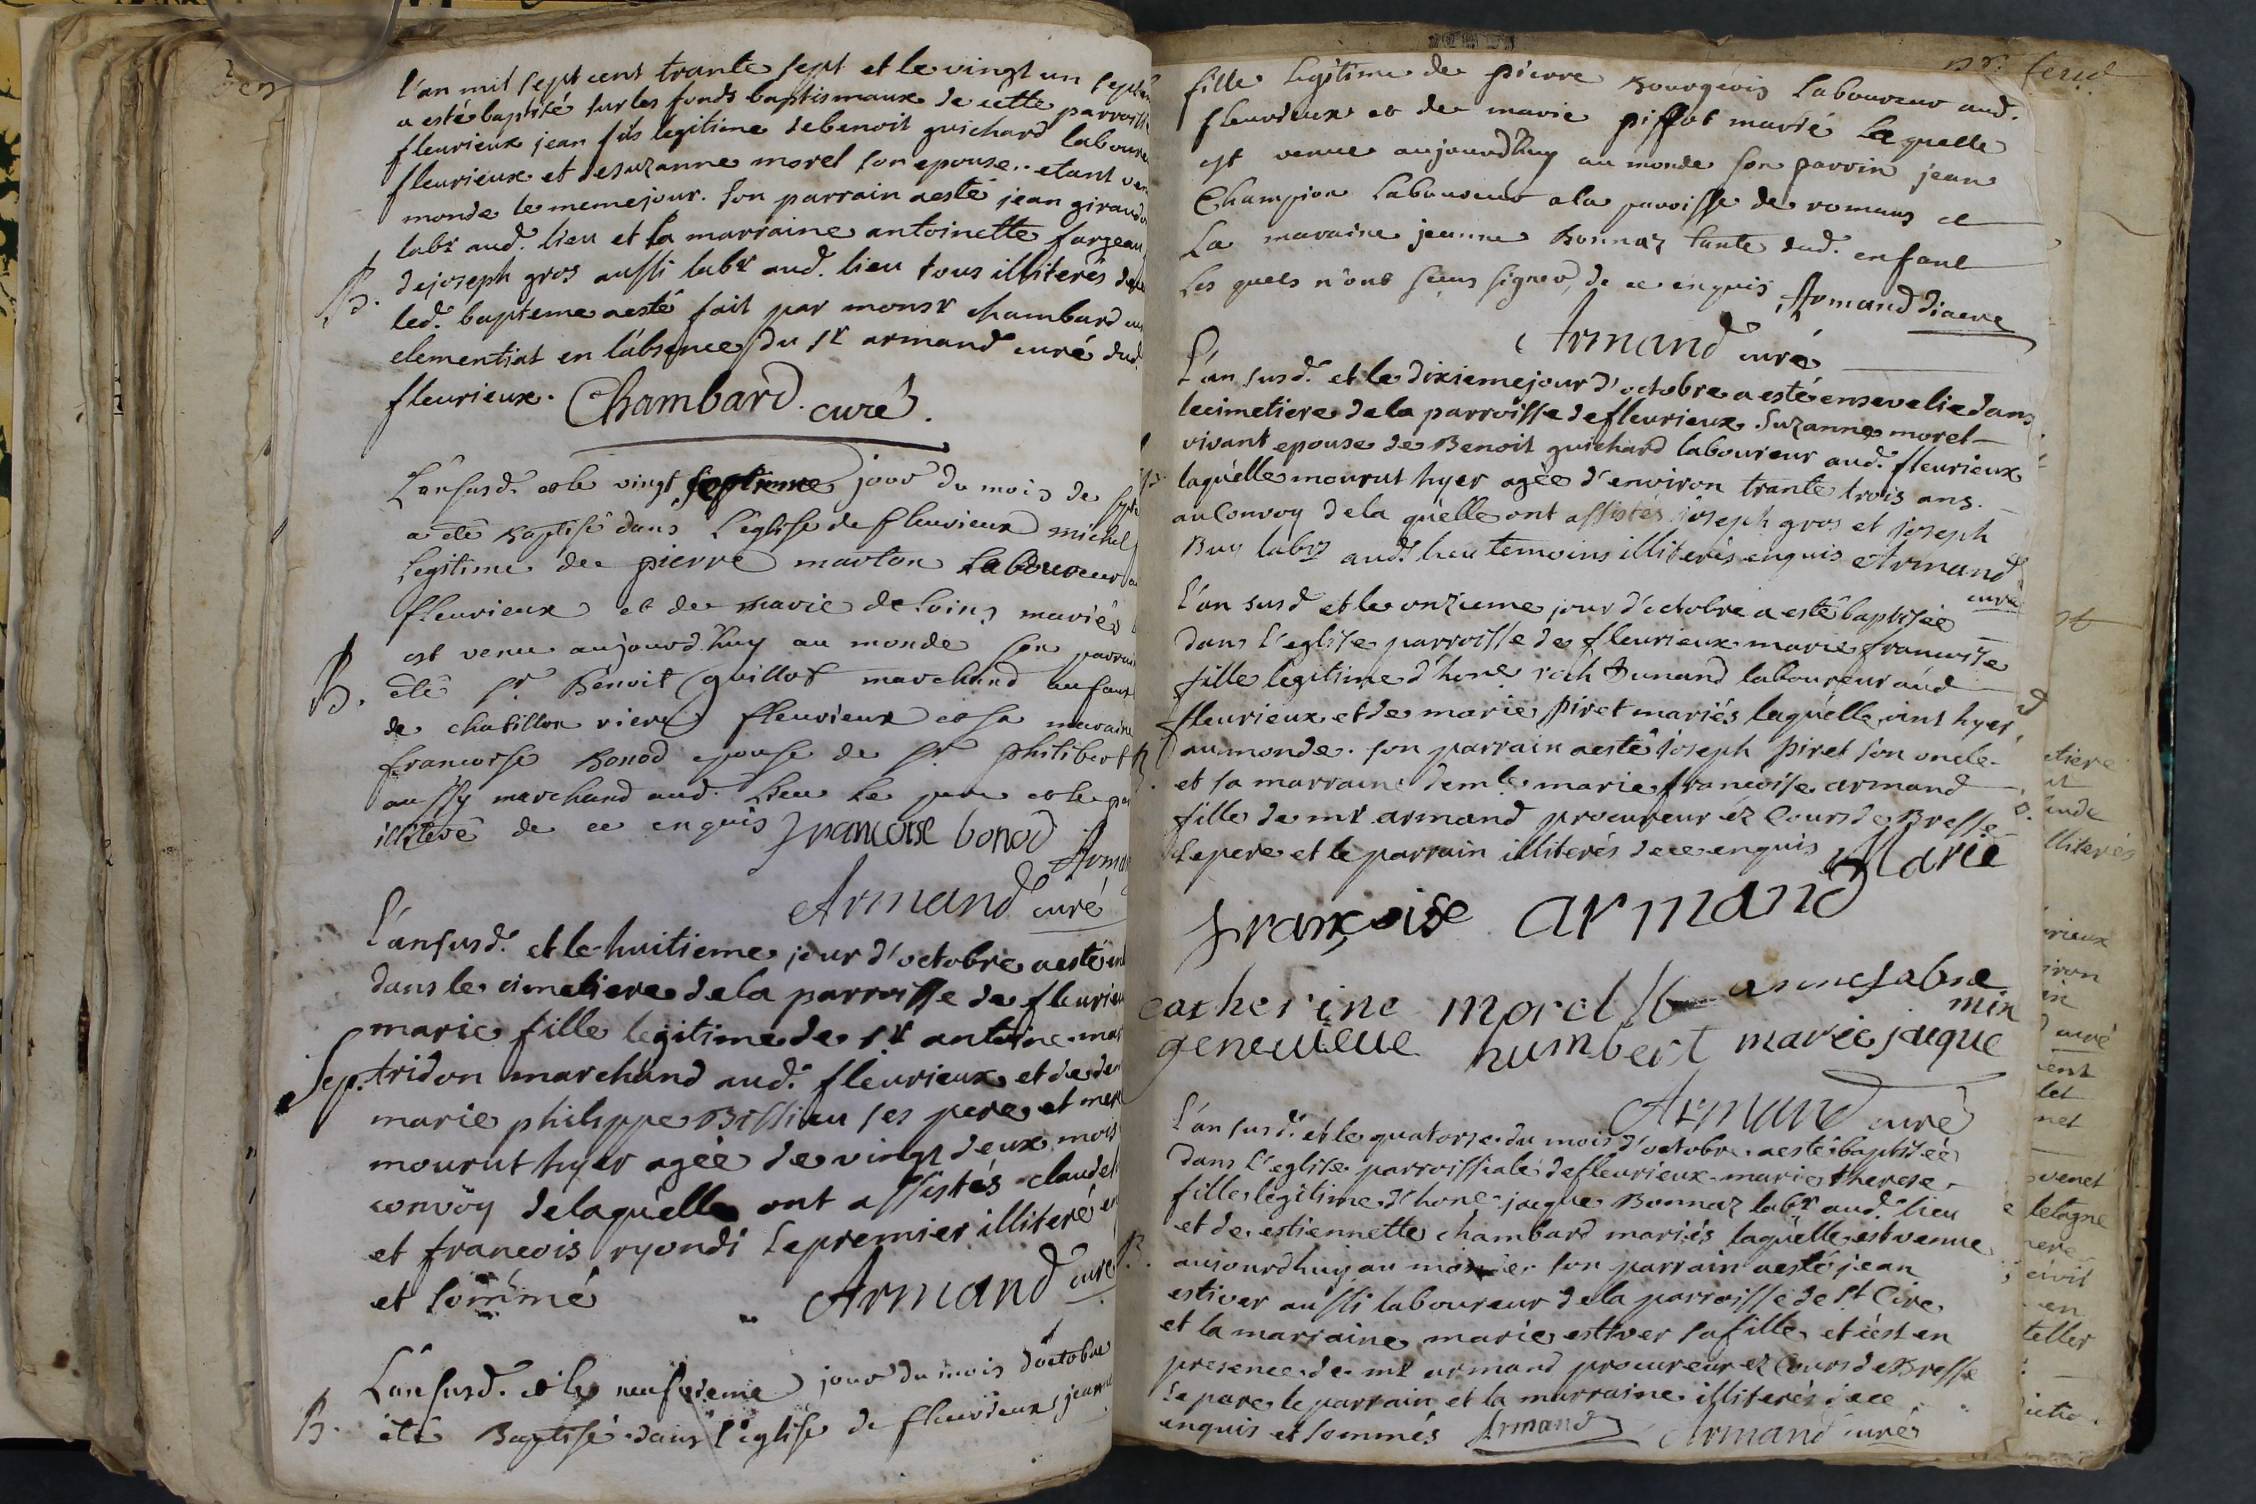 L'an mil sept cent trante sept et le vingt un
a esté baptisé sur les fonds baptismaux de cette
fleurieux jean fils legitime de benoit guichard
fleurieux et de suzanne morel son epouse. etant
monde le meme jour. son parrain a esté jean
labr aud. lieu et la marraine antoinette
B. de joseph gros aussi labr aud. lieu tous illiterés
led. bapteme a esté fait par monsr chambard
clementiat en l'absence du sr armand curé dud.
fleurieux. Chambard curé.
L'an susd. et le vingt septieme jour du mois de
a été Baptisé dans l'eglise de fleurieux michel
legitime de pierre marton Laboureur
fleurieux et de marie de loins mariés
est venu aujourd'huy au monde son
B. été sr Benoit guillot marchand
de chatillon riere fleurieux et sa
francoise Bonod epouse de sr philibert
aussy marchand aud. Lieu le pere et le
illiteré de ce enquis francoise bonod
Armand curé
L'an susd. et le huitieme jour d'octobre a esté
dans le cimetiere de la parroisse de
marie fille legitime de sr antoine
Sep. tridon marchand aud. fleurieux et de
marie philippe ses pere et
mourut hyer agée de vingt deux mois
convoy de laquelle ont assistés
et francois ryondi le premier illiteré
et sommé Armand curé
L'an susd. et le neufvieme jour du mois d'octobre
B. été Baptisé dans l'eglise de fleurieux
fille legitime de pierre Bourgeois Laboureur aud.
fleurieux et de marie marié Laquelle
est venue aujourd'huy au monde son parrin jean
Champion Laboureur a la paroisse de romans et
La maraine jeanne Bonnaz tante dud. enfant
Les quels n'ont sceus signer de ce enquis Armand diacre
Armand curé
L'an susd. et le dixieme jour d'octobre a esté ensevelie dans
le cimetiere de la parroisse de fleurieux Suzanne morel
vivant epouse de Benoit guichard laboureur aud. fleurieux
laquelle mourut hyer agée d'environ trante trois ans.
au Convoy de la quelle ont assistés joseph gros et joseph
Buy labrs aud. lieu temoins illiterés enquis Armand
curé
L'an susd et le onzieme jour d'octobre a esté baptisée
dans l'eglise parroisse de fleurieux marie francoise
fille legitime d'hone roch Dunand laboureur aud
fleurieux et de marie piret mariés laquelle vint hyer
au monde. son parrain a esté joseph piret son oncle
et sa marraine demle marie francoise armand
fille de mr armand procureur ez Cours de Bresse
le pere et le parrain illiterés de ce enquis Marie
françoise armand
catherine morel
genevieve humbert marie jaque min
Armand curé
L'an susd. et le quatorse du mois d'octobre a esté baptisée
dans l'eglise parroissiale de fleurieux marie therese
fille legitime d'hone jaque Bonnaz labr aud. lieu
et de estiennette chambard mariés laquelle est venue
B. aujourdhuy au monde son parrain a esté jean
estiver aussi laboureur de la parroisse de st Cire
et la marraine marie estiver sa fille et c'est en
presence de mr armand procureur ez Cours de Bresse
le pere le parrain et la marraine illiterés de ce
enquis et sommés Armand Armand curé